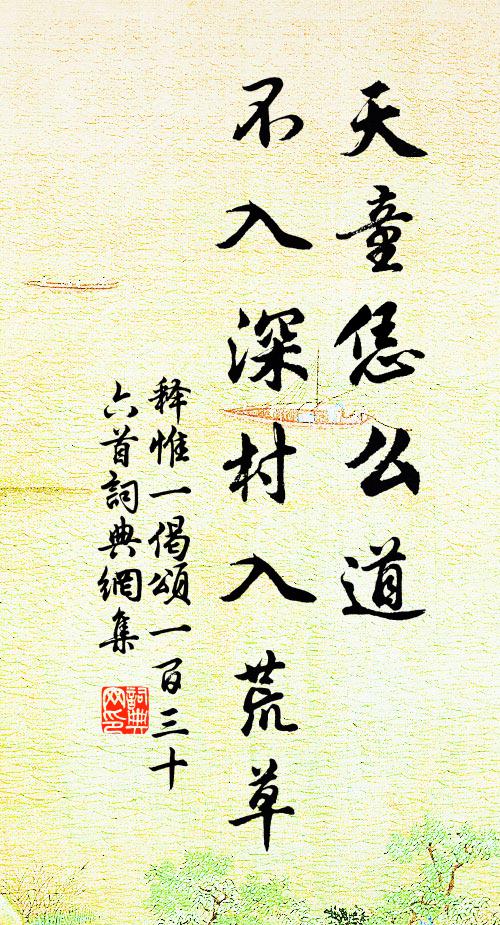 天童恁么道
不入深村入荒草
释惟一偈頌一百三十
六首詞典網集
詞典
网印